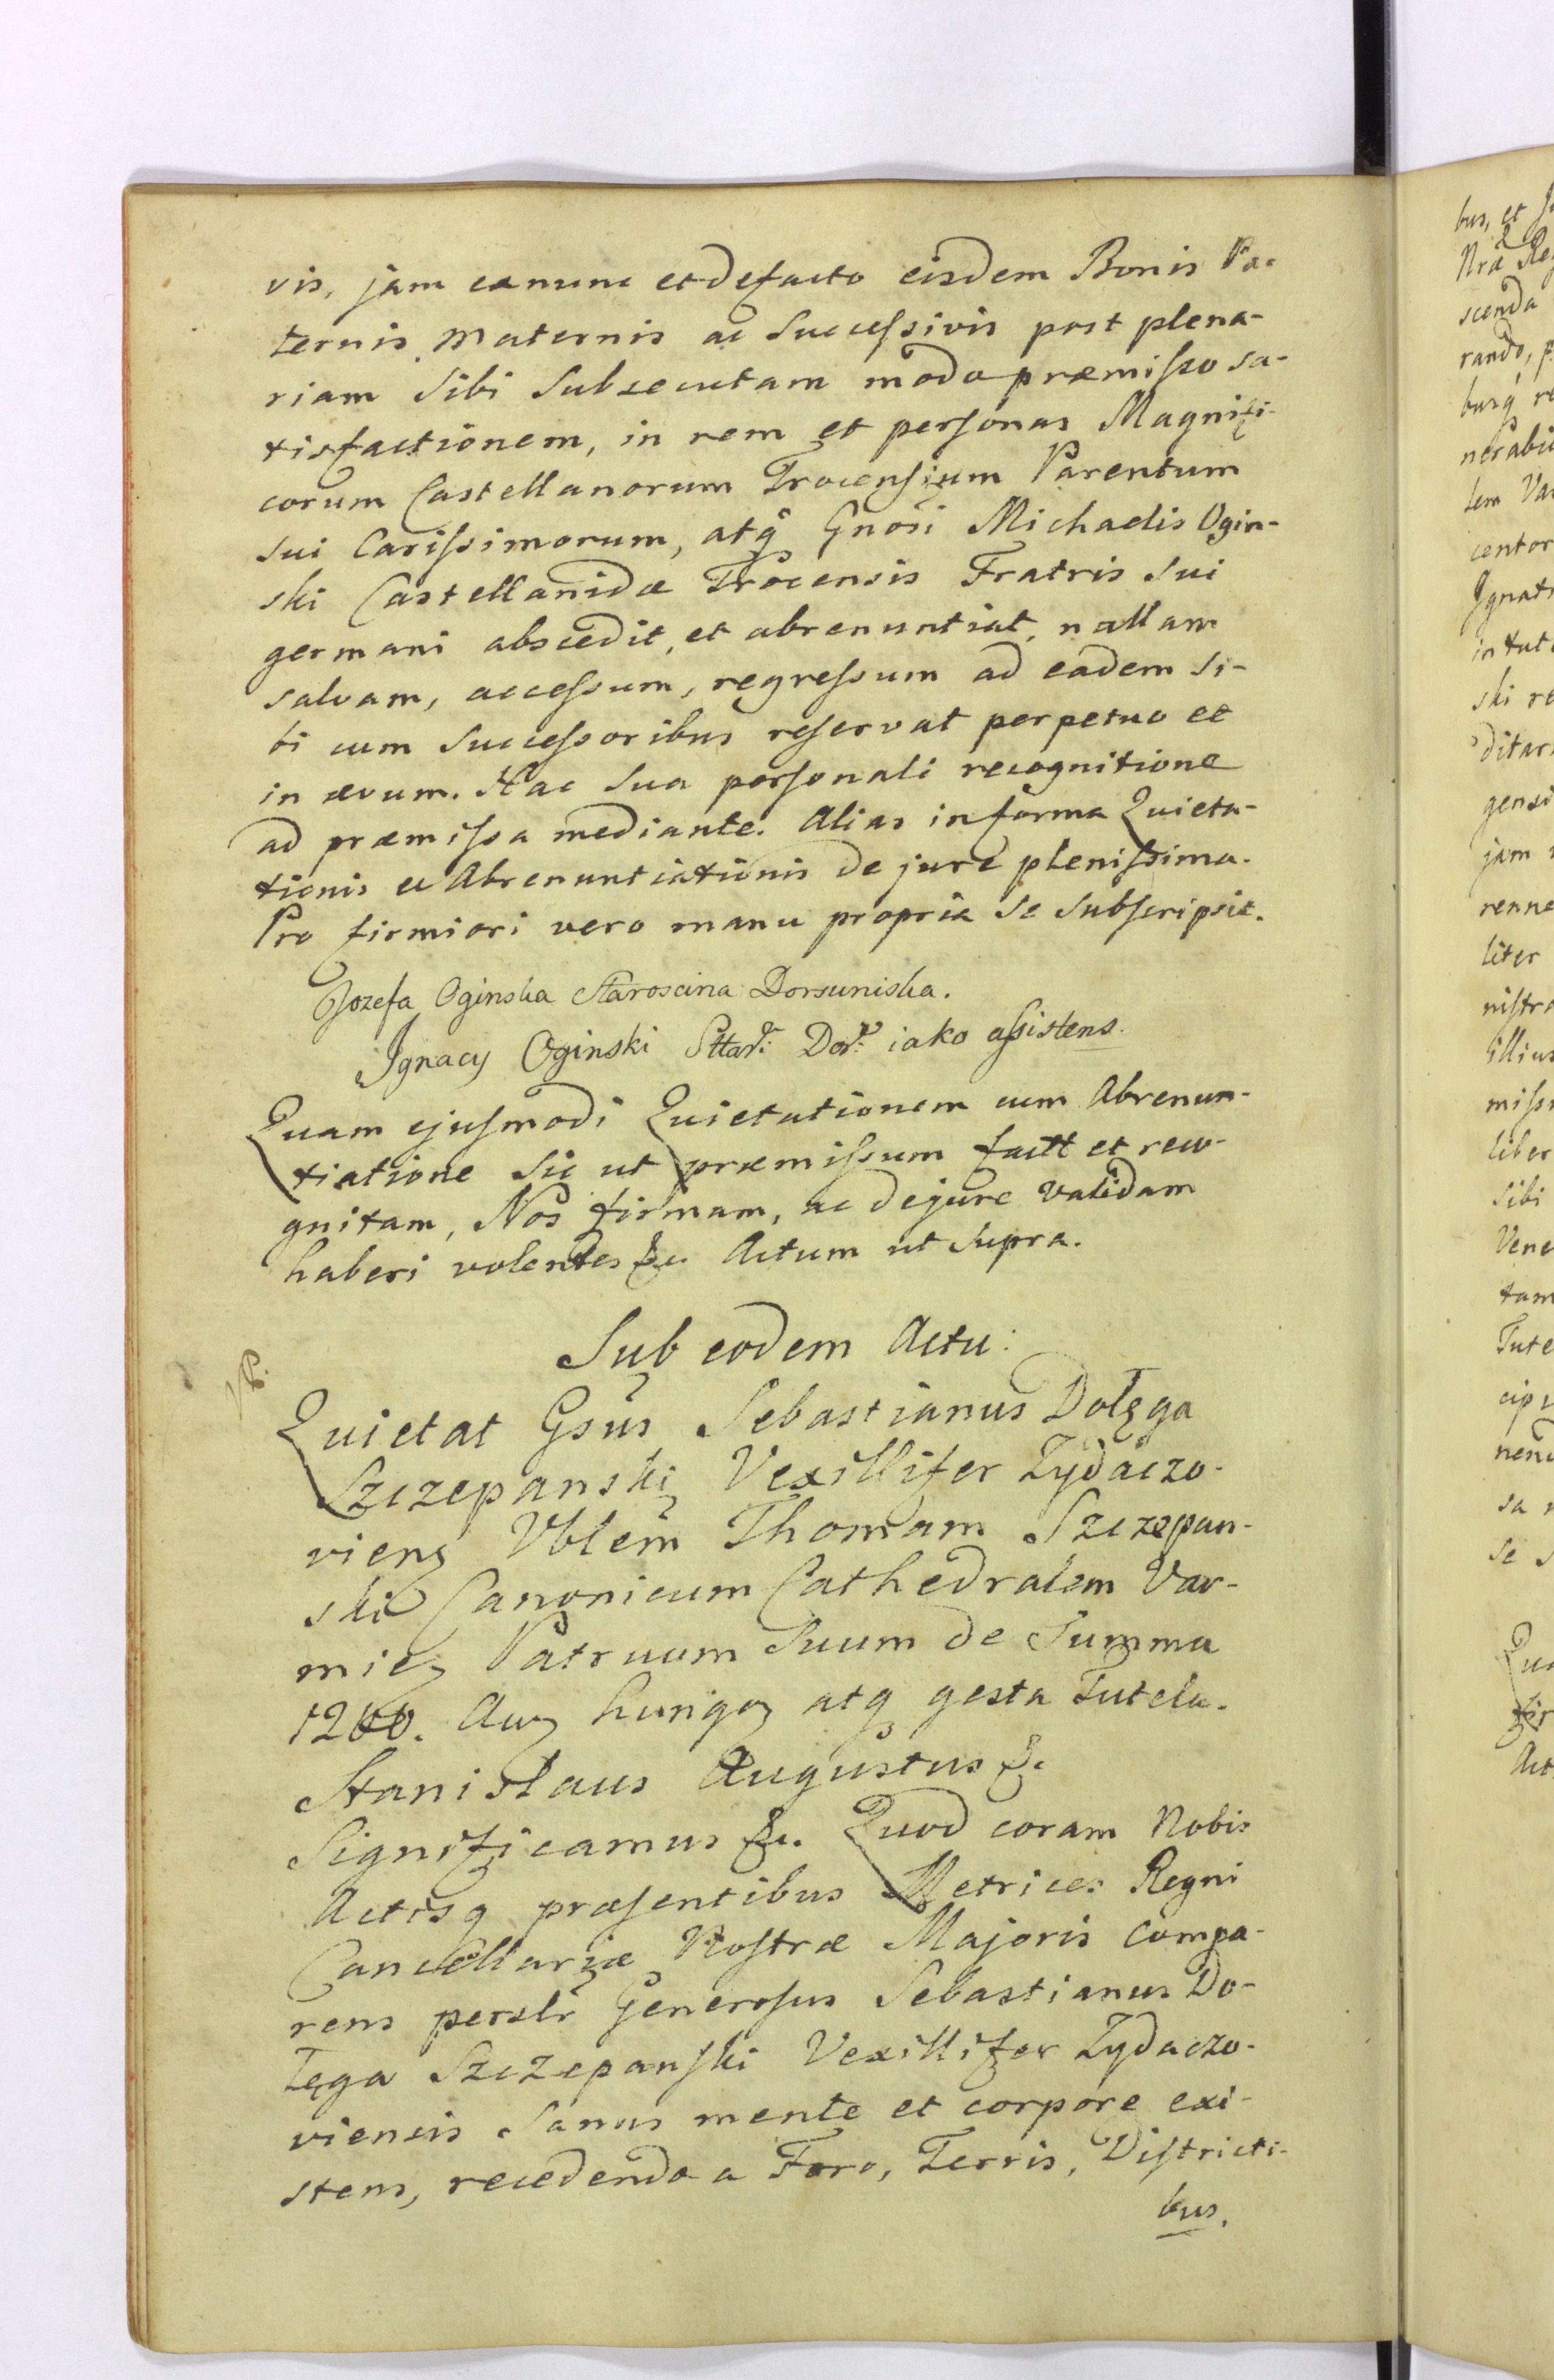 vis, jam ex nunc et de facto eisdem Bonis Pa-
ternis, Maternis ac Successivis post plena-
riam Sibi Subsecutam modo præmisso sa-
tisfactionem, in rem et personas Magnifi-
corum Castellanorum Trocensium Parentum
Sui Carissimorum, atq̃ Gnosi Michaelis Ogin-
ski Castellanidæ Trocensis Fratris Sui
germani abscedit, et abrenuntiat, nullam
salvam, accessum, regressum ad eadem Si-
bi cum Successoribus reservat perpetuo et
in ævum. Hac Sua personali recognitione
ad præmissa mediante. Alias in forma Quieta-
tionis et Abrenuntiationis de jure plenissima.
Pro firmiori vero manu propria Se Subscripsit.
Jozefa Oginska Staroscina Dorsuniska.
Ignacy Oginski Sttar: Dor: iako assistens.
Quam ejusmodi Quietationem cum Abrenun-
tiatione Sic ut præmissum factt et reco-
gnitam, Nos firmam, ac de jure validam
haberi volentes &c. Actum ut Supra.
Sub eodem Actu:
Quietat Gsus Sebastianus Dołęga
Szczepanski Vexillifer Zydaczo-
viens Vblem Thomam Szczepan-
ski Canonicum Cathedralem Var-
mien Patruum Suum de Summa
1200. Aur hungar atq gesta Tutela.
Stanislaus Augustus &c
Significamus &c. Quod coram Nobis
Actisq præsentibus Metrices Regni
Cancellariæ Nostræ Majoris Compa-
rens perslr Generosus Sebastianus Do-
łęga Szczepanski Vexillifer Zydaczo-
viensis Sanus mente et corpore exi-
stens, recedendo a Foro, Terris, Districti-
bus,